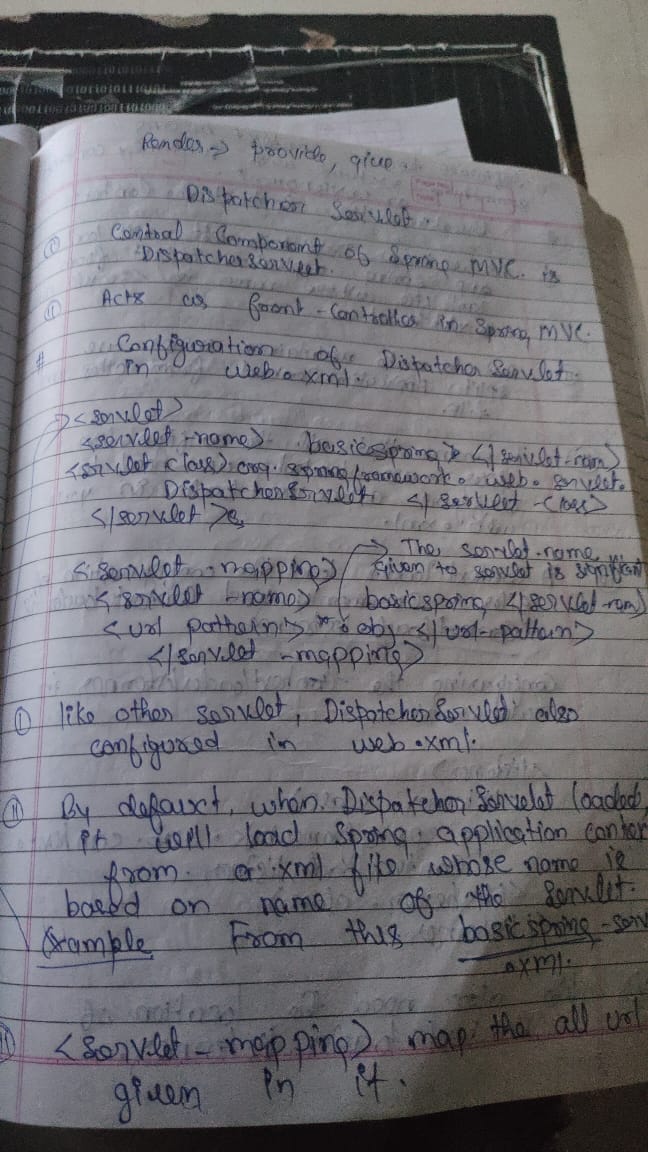 Render → provide, give.
Dispatcher Servlet.
(I) Central Component of Spring MVC. is
DispatcherServlet.
(II) Acts as front-Controller in Spring MVC.
# Configuration of Dispatcher Servlet.
in web.xml.
→ <servlet>
<servlet-name> basicspring </servlet-nam>
<servlet class> org. springframework. web. servlet.
DispatcherServlet </servlet-class>
</servlet>
→ The servlet-name
given to servlet is significant
<servlet-mapping>
<servlet-name> basicspring </servlet-nam>
<url pattern> </url-pattern>
</servlet-mapping>
(I) like other servlet, DispatcherServlet also
configured in web.xml.
(II) By default, when DispatcherServlet loaded,
it will load Spring application contex
from a xml file whose name is
based on name of the Servlet.
Example From this basicspring-serv
.xml.
<Servlet-mapping> map the all url
given in it.